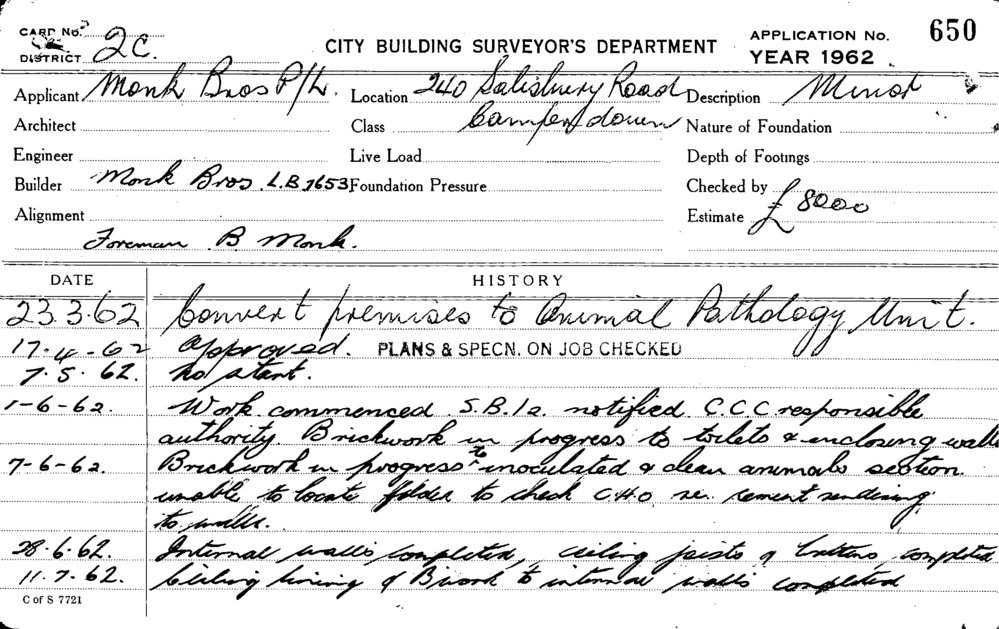 CARD NO. 2C. CITY BUILDING SURVEYOR'S DEPARTMENT APPLICATION No. 650
DISTRICT YEAR 1962
Applicant Monk Bros P/L. Location 240 Salisbury Road Description Minor
Architect Class Camperdown Nature of Foundation
Engineer Live Load Depth of Footings
Builder Monk Bros. L.B. 7653 Foundation Pressure Checked by
Alignment Estimate £ 8000
Foreman B Monk.
DATE HISTORY
23.3.62 Convert premises to Animal Pathology Unit.
17.4.62 Approved. PLANS & SPECN. ON JOB CHECKED
7.5.62. No start.
1-6-62. Work commenced. S.B.12. notified. C.C.C responsible
authority. Brickwork in progress to toilets & enclosing walls
7-6-62. Brickwork in progress to inoculated & clean animals section
unable to locate folder to check C.H.O re. cement rendering
to walls.
28.6.62. Internal walls completed, ceiling joists & completed
11.7.62. Ceiling lining & to internal walls completed
C of S 7721